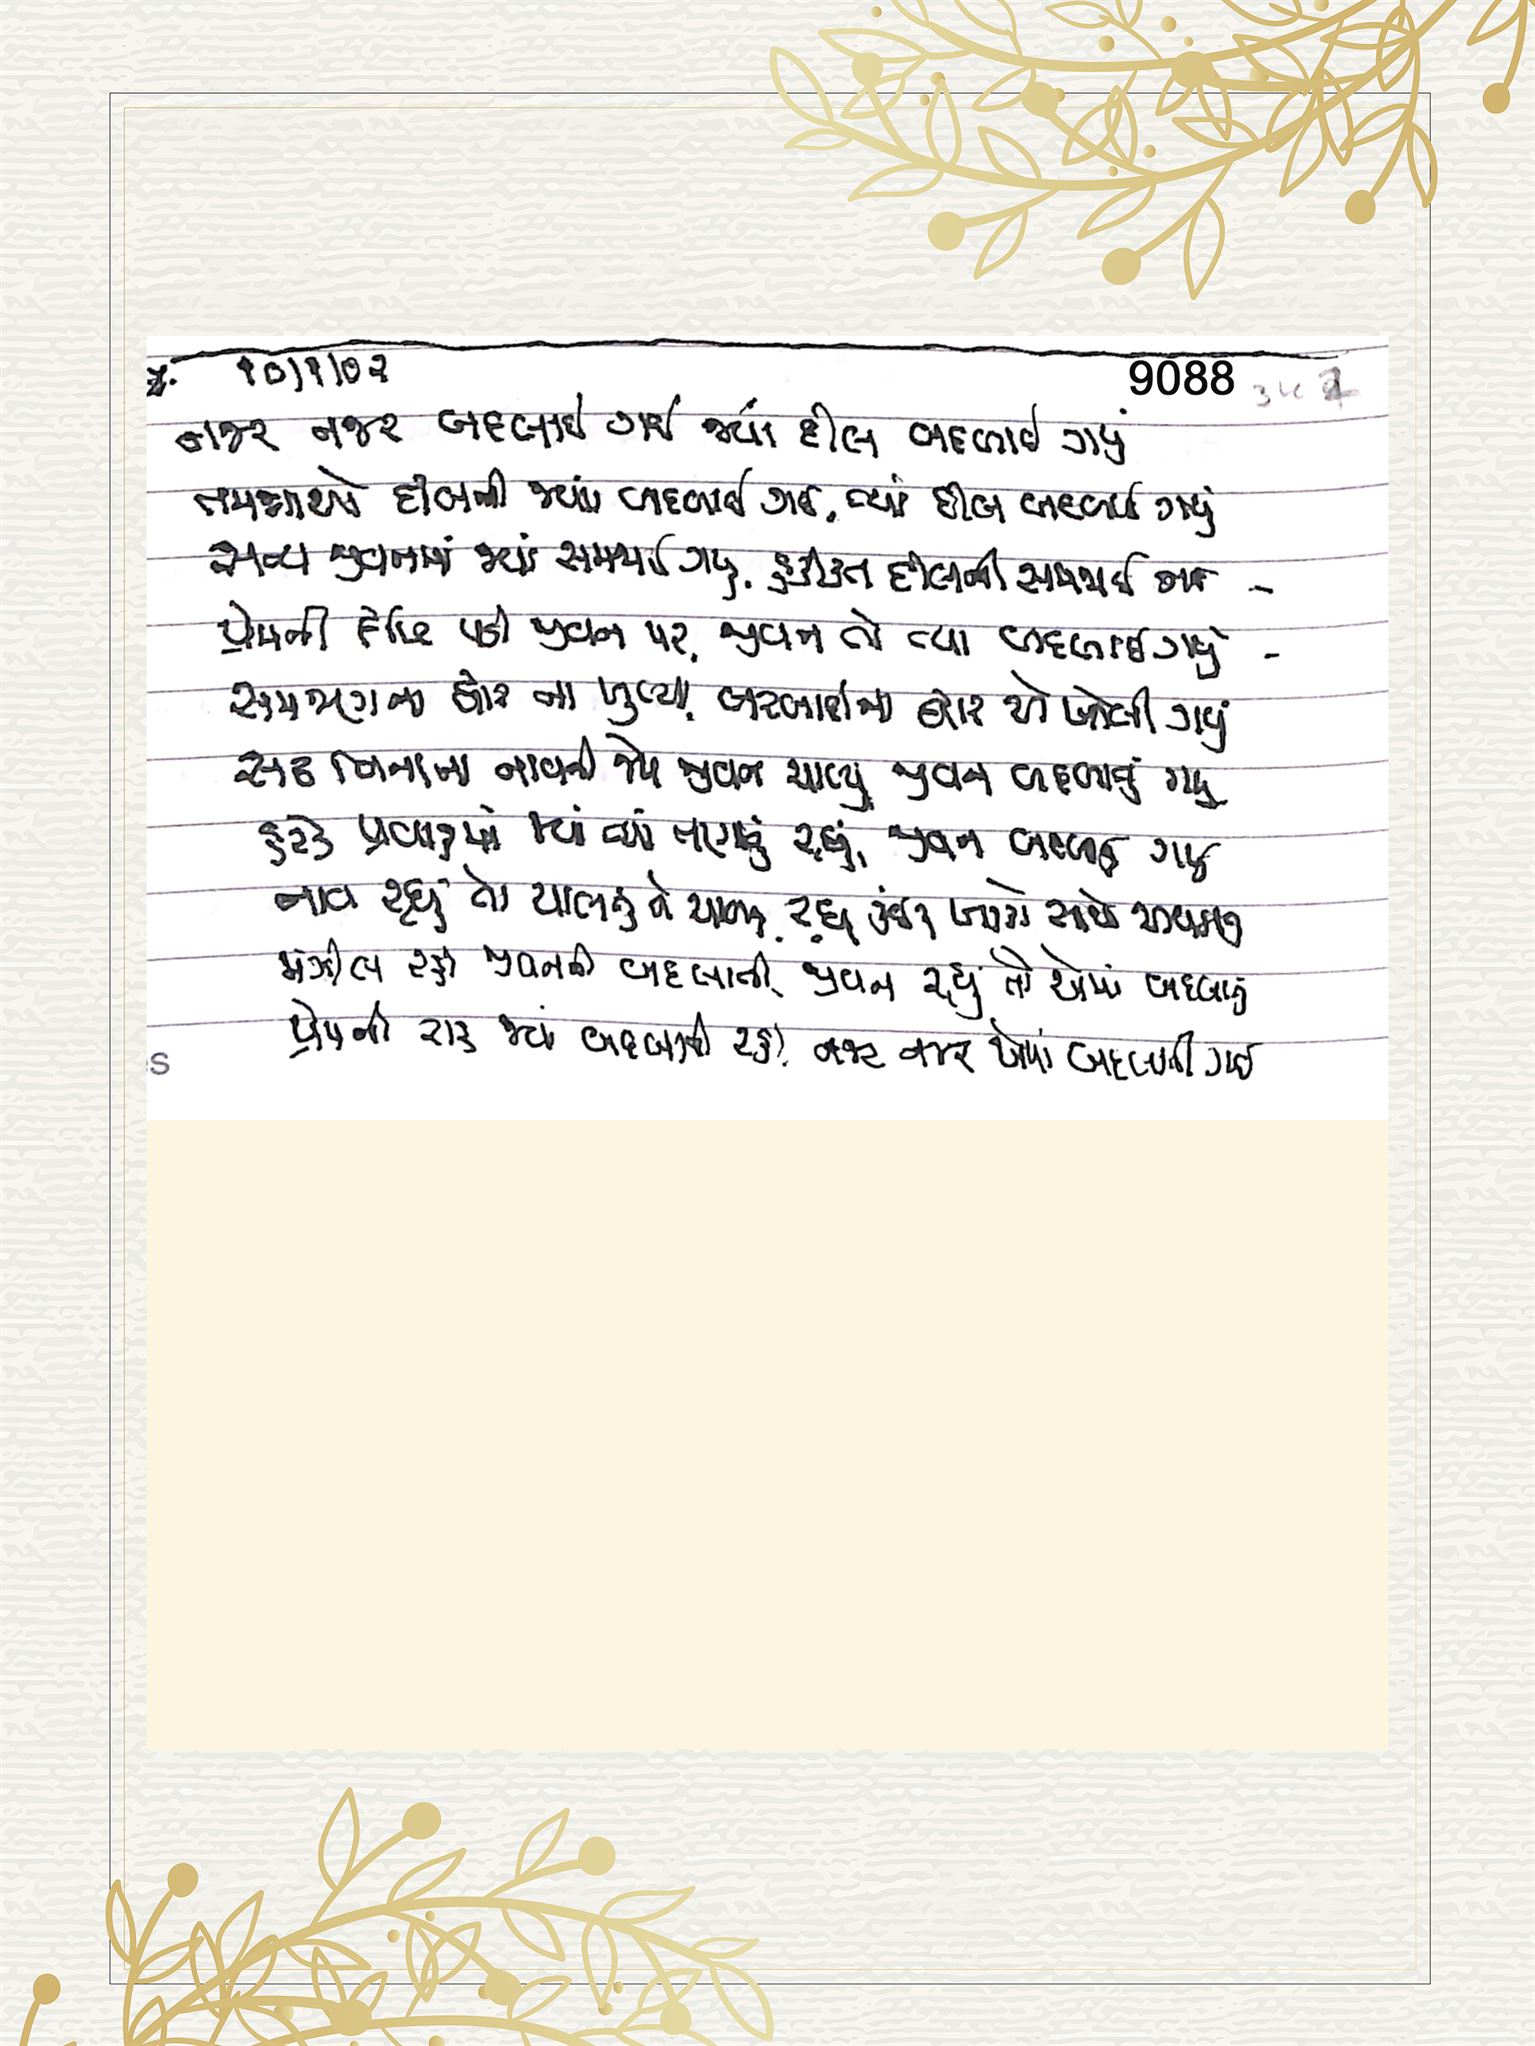 ૧૦)૧)૦૨
9088
નજર નજર બદલાઈ ગઈ જ્યાં દીલ બદલાઈ ગયું
તમન્નાઓ દીલની જ્યાં બદલાઈ ગઈ, ત્યાં દીલ બદલાઈ ગયું
સત્ય જીવનમાં જ્યાં સમજાઈ ગયુ. હકીકત દીલની સમજાઈ ગઈ -
પ્રેમની દૃષ્ટિ પડી જીવન પર, જીવન તો ત્યા બદલાઈ ગયું -
સમજણના દ્વાર ના ખુલ્યા, બરબાદીના દ્વાર એ ખોલી ગયું
સઢ વિનાના નાવની જેમ જીવન ચાલ્યુ જીવન બદલાતું ગયુ
હરેક પ્રવાહમાં જ્યાં ત્યાં તણાતું રહ્યું, જીવન બદલાતુ ગયુ
નાવ રહ્યું તો ચાલતુ ને ચાલતુ રહ્યુ સાથે
મંઝીલ રહી જીવનની બદલાતી, જીવન રહ્યું તો એમાં બદલાતું
પ્રેમની રાહ જ્યાં બદલાતી રહી, નજર નજર એમાં બદલાતી ગઈ